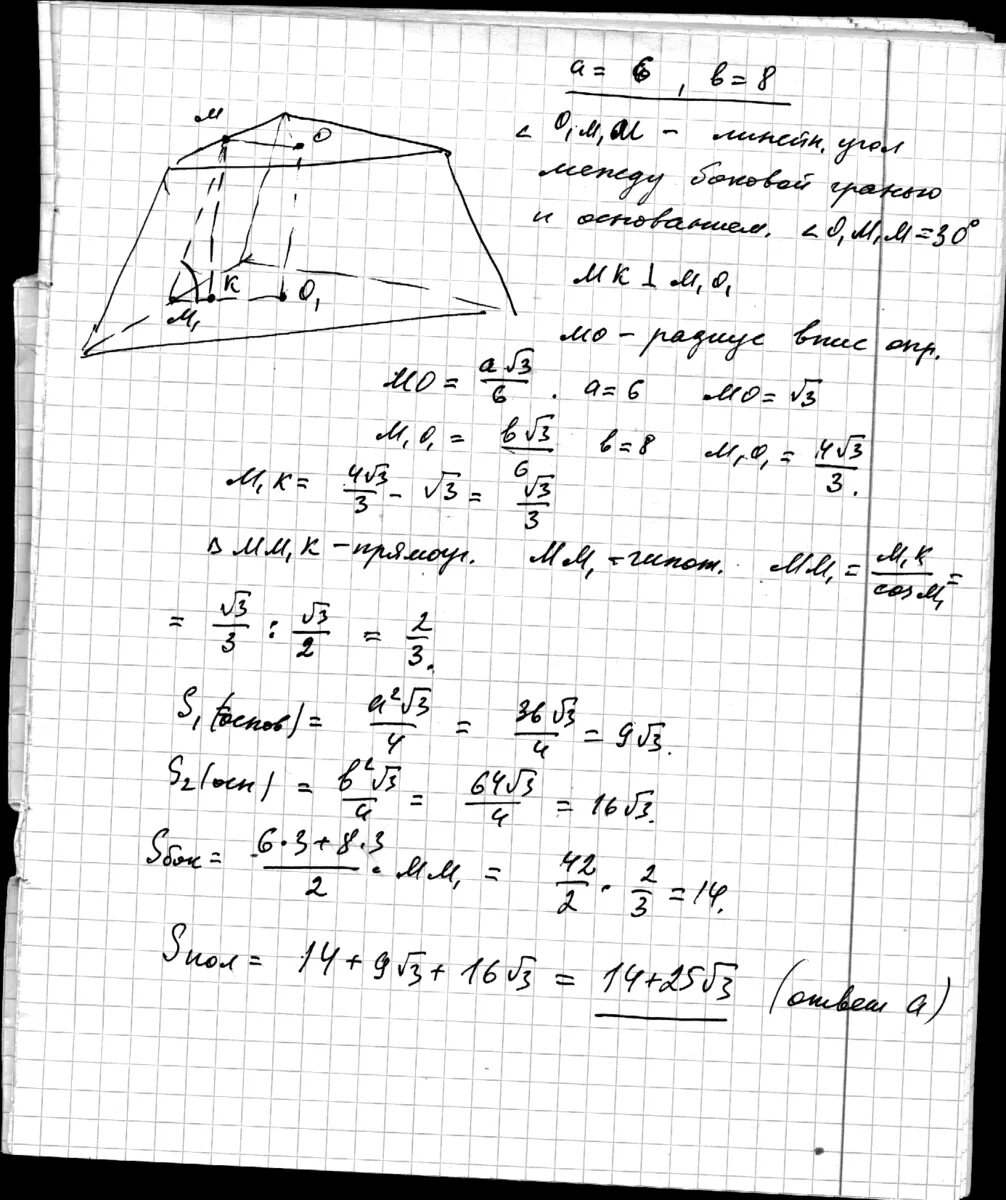 a = 6 , b = 8
M
O
K
O₁
M₁
∠ O₁M₁M – линейн. угол
между боковой гранью
и основанием. ∠ O₁M₁M = 30°
MK ⊥ M₁O₁
MO – радиус впис окр.
MO = a√3/6 . a = 6 MO = √3
M₁O₁ = b√3/6 b = 8 M₁O₁ = 4√3/3.
M₁K = 4√3/3 – √3 = √3/3
∆ MM₁K – прямоуг. MM₁ – гипот. MM₁ = M₁K/cosM₁ =
= √3/3 : √3/2 = 2/3.
S₁(основ) = a²√3/4 = 36√3/4 = 9√3.
S₂(осн) = b²√3/4 = 64√3/4 = 16√3.
Sбок = 6·3+8·3/2 · MM₁ = 42/2 · 2/3 = 14.
Sпол = 14 + 9√3 + 16√3 = 14+25√3 (ответ а)